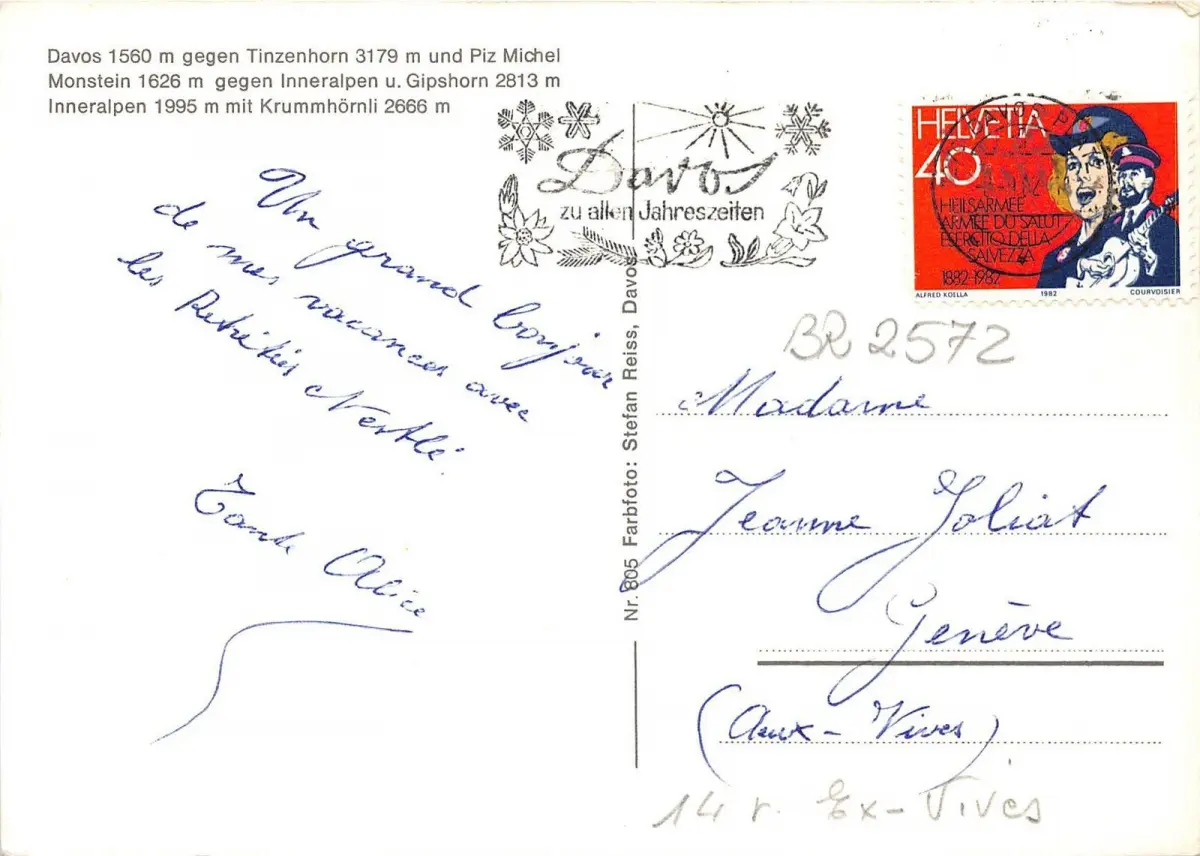 Davos 1560 m gegen Tinzenhorn 3179 m und Piz Michel
Monstein 1626 m gegen Inneralpen u. Gipshorn 2813 m
Inneralpen 1995 m mit Krummhörnli 2666 m
Davos
zu allen Jahreszeiten
HELVETIA
40
HEILSARMEE
ARMEE DU SALUT
ESERCITO DELLA
SALVEZZA
1882-1982
ALFRED KOELLA 1982 COURVOISIER
Un grand bonjour
de mes vacances avec
les Retraités Nestlé.
Tante Alice
Nr. 805 Farbfoto: Stefan Reiss, Davos
BR 2572
Madame
Jeanne Joliat
Genève
(Aux-Vives)
14 r. Ex-Vives